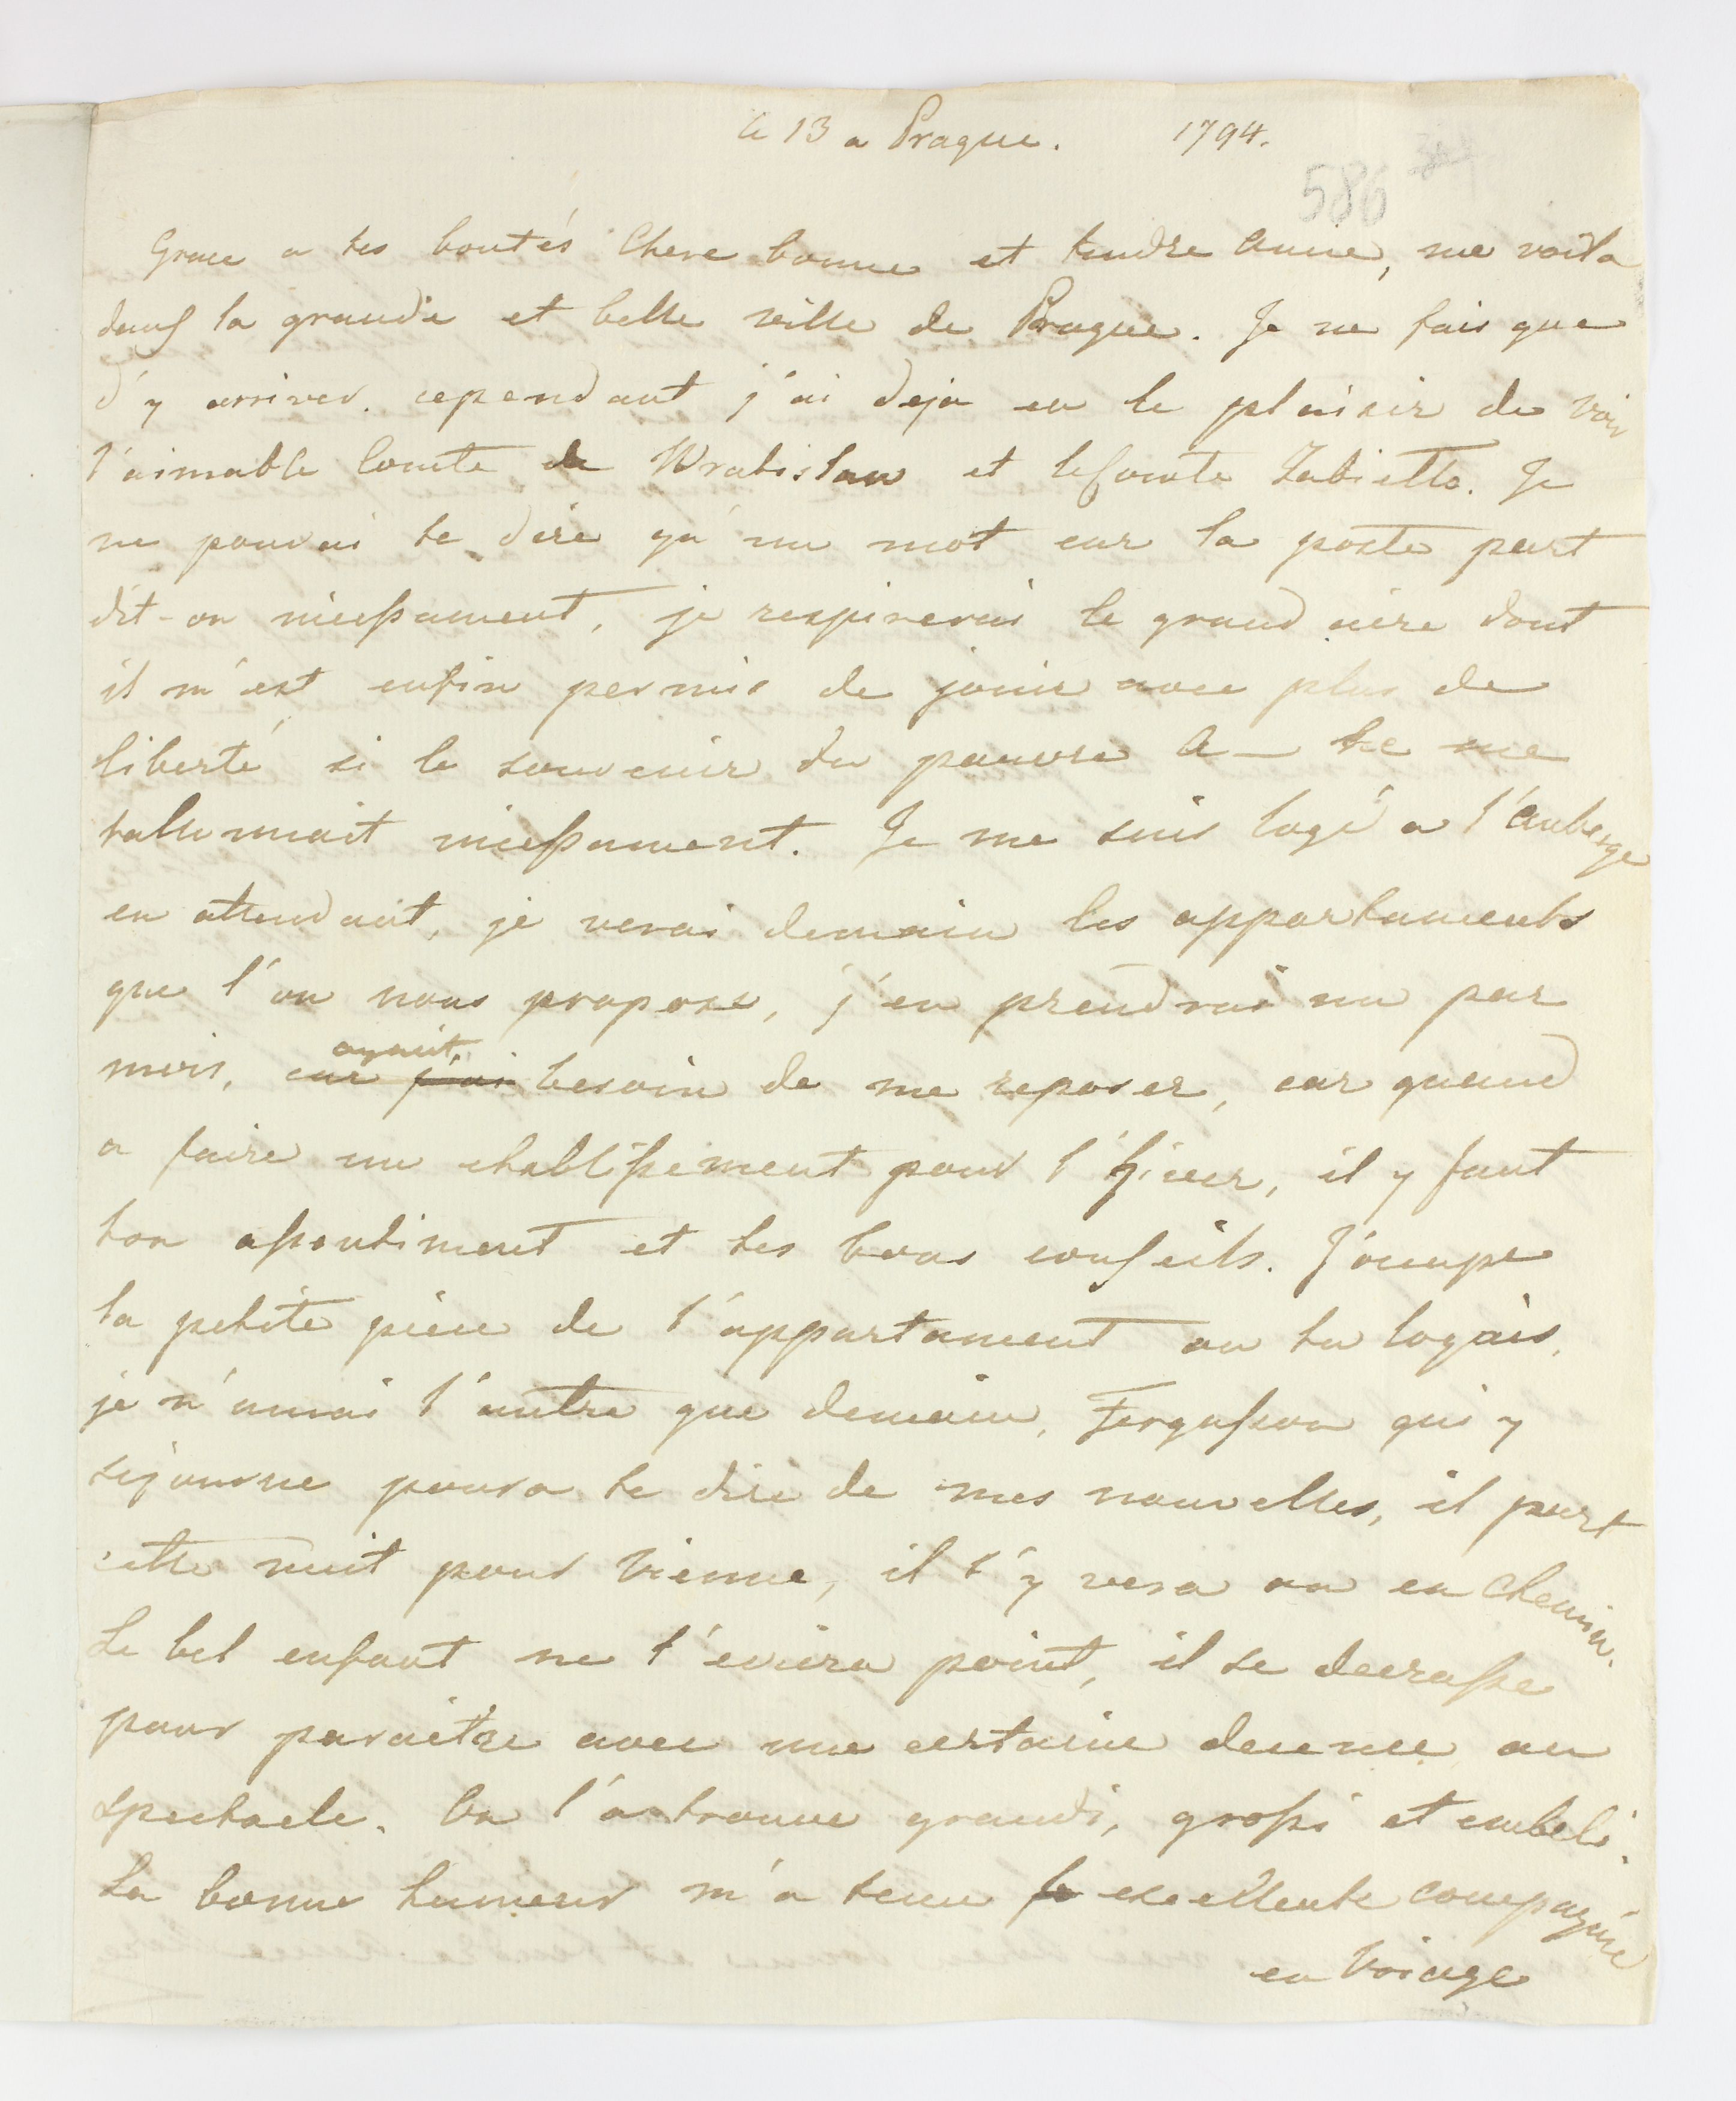 le 13 a Prague. 1794.
586
Grace a tes bontés Chere bonne et tendre Amie, me voila
dans la grande et belle ville de Prague. Je ne fais que
d'y arriver. cependant j'ai deja eu le plaisir de voir
l'aimable Comte de Wratislaw et le Comte Zabiello. Je
ne pourai te dire qu'un mot car la poste part
dit-on incessament, je respirerai le grand aire dont
il m'est enfin permis de jouir avec plus de
liberté si le souvenir du pauvre A— ne me
incessament. Je me suis logé a l'Auberge
en attendant, je verai demain les appartaments
que l'on nous propose, j'en prendrai un par
mois, ayant
car j'ai besoin de me reposer, car quand
a faire un etablissement pour l'hiver, il y faut
ton assentiment et tes bons conseils. J'occupe
la petite piece de l'appartament ou tu logais,
je n'aurai l'autre que demain, Fergusson qui y
sejourne poura te dire de mes nouvelles, il part
cette nuit pour Vienne, il t'y vera ou en chemin.
Le bel enfant ne t'ecrira point, il se decrasse
pour paraitre avec une certaine decence au
spectacle. On l'a trouve grandi, grossi et embeli.
Sa bonne humeur m'a tenu excellente compagnie
en Voiage